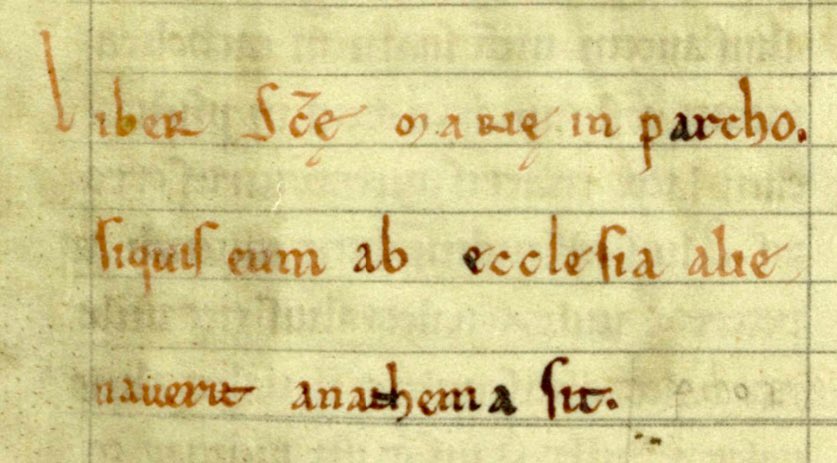 Liber Sc̄ę Marię in parcho.
siquis eum ab ecclesia alie
naverit anathema sit.